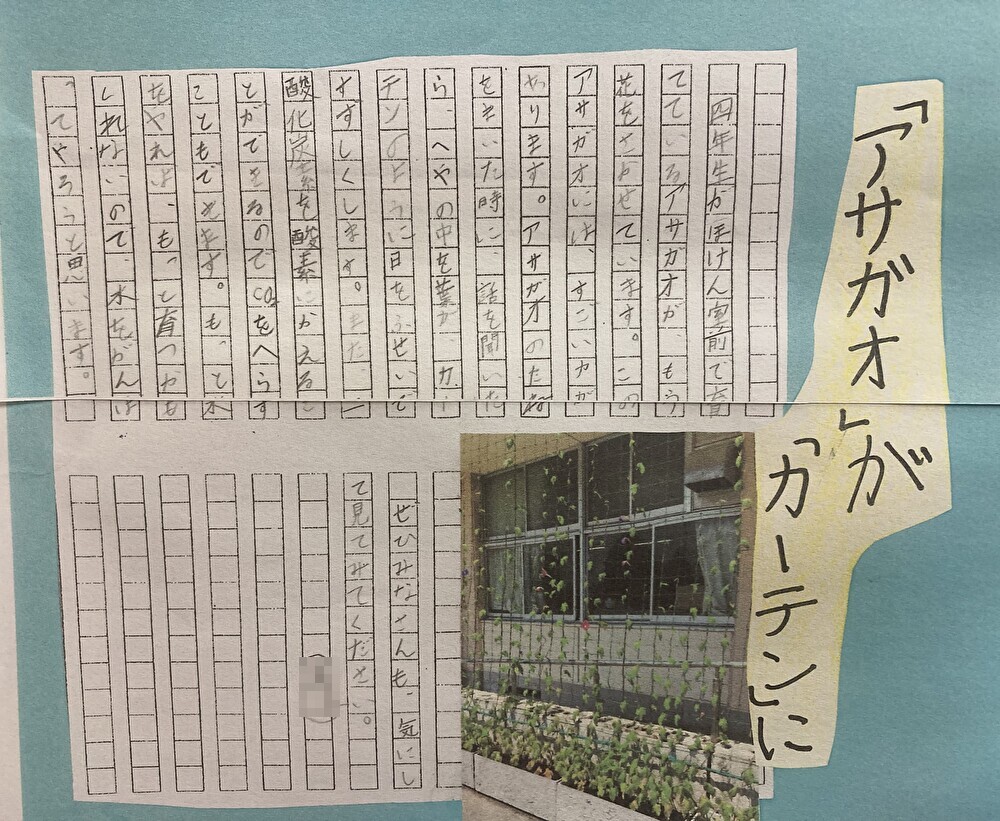 「アサガオ」が
「カーテン」に
四年生がほけん室前で育
てているアサガオが、もう
花をさかせています。この
アサガオには、すごい力が
あります。アサガオのたね
をまいた時に、話を聞いた
ら、へやの中を葉が、カー
テンのように日をふせいで
すずしくします。また、二
酸化炭素を酸素にかえるこ
とができるのでCO₂をへらす
こともできます。もっと水
をやれば、もっと育つかも
しれないので、水をがんば
ってやろうと思います。
ぜひみなさんも、気にし
て見てみてください。